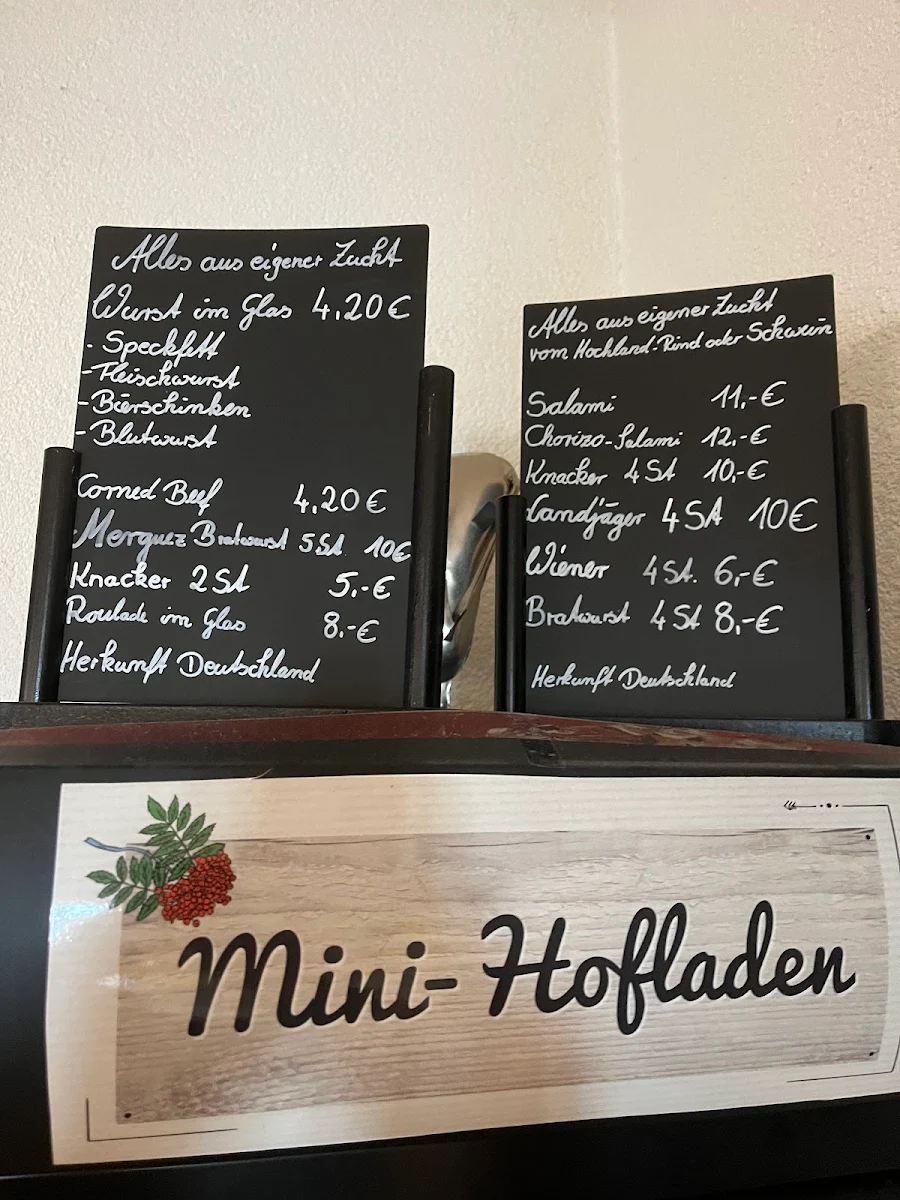 Alles aus eigener Zucht
Wurst im Glas 4,20 €
- Speckfett
- Fleischwurst
- Bierschinken
- Blutwurst
Corned Beef 4,20 €
Merguez Bratwurst 5 St. 10€
Knacker 2 St 5,-€
Roulade im Glas 8,-€
Herkunft Deutschland
Alles aus eigener Zucht
vom Hochland-Rind oder Schwein
Salami 11,-€
Chorizo-Salami 12,-€
Knacker 4 St 10,-€
Landjäger 4 St 10€
Wiener 4 St. 6,-€
Bratwurst 4 St 8,-€
Herkunft Deutschland
Mini-Hofladen